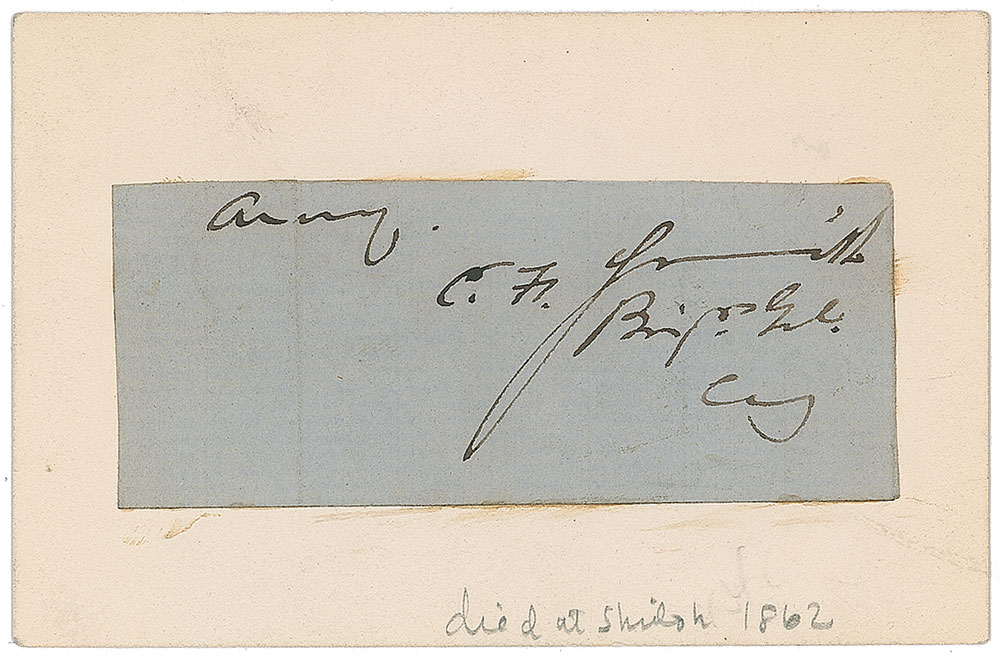 Army.
C. F. Smith
Brig. Gl.
Cmg
died at Shiloh 1862